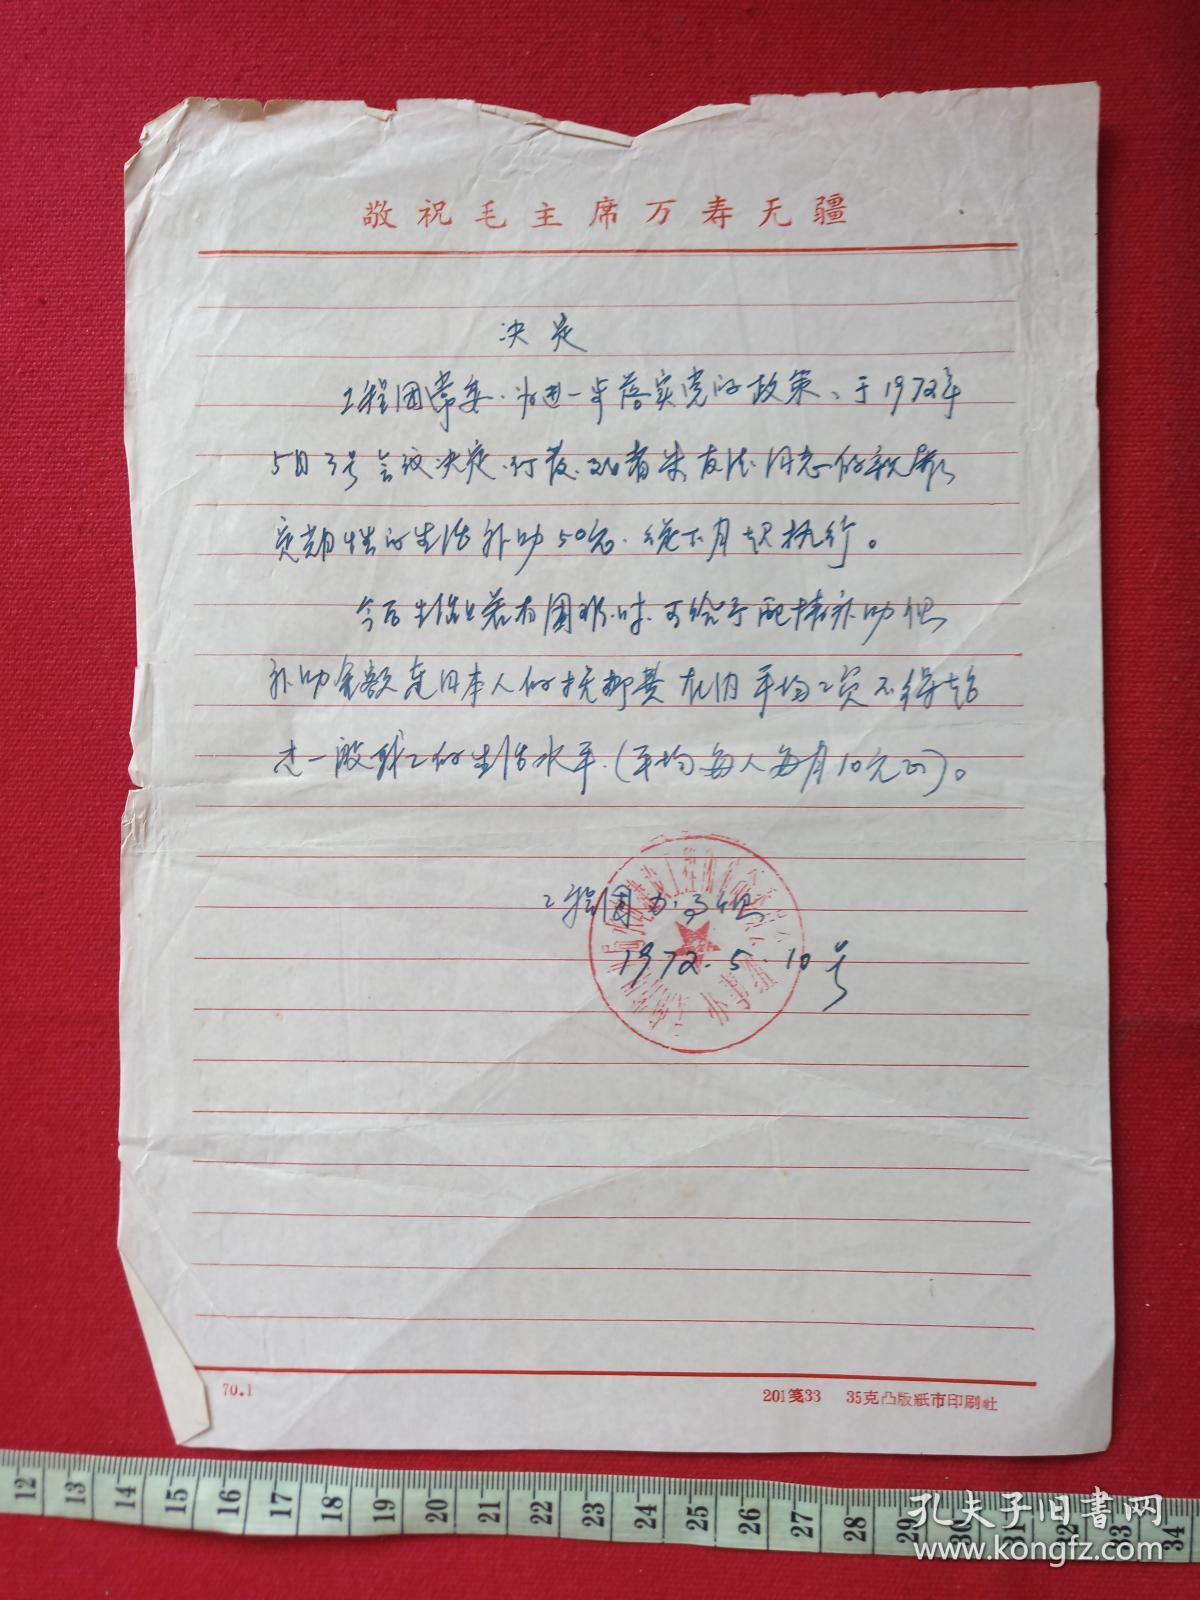 敬祝毛主席万寿无疆
决定
工程团常委.为进一步落实党的政策、于1972年
5月3号会议决定.付发.死者朱友法同志的亲属
定期性的生活补助50元.从下月起执行。
今后生活上若有困难时.可给予配情补助但
补助金额连同本人的抚恤费在内平均工资不得超
过一般职工的生活水平.(平均每人每月10元正)。
工程团办事组
1972.5.10号
办事组
70.1
201笺33 35克凸版紙市印刷社
12 13 14 15 16 17 18 19 20 21 22 23 24 25 26 27 28 29 30 31 32 33 34
孔夫子旧书网
www.kongfz.com